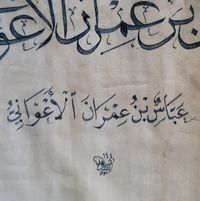 بن عمران الأعواني
عَبَّاسُ بْنُ عِمْرَانَ الْأَعْوَانِيُّ